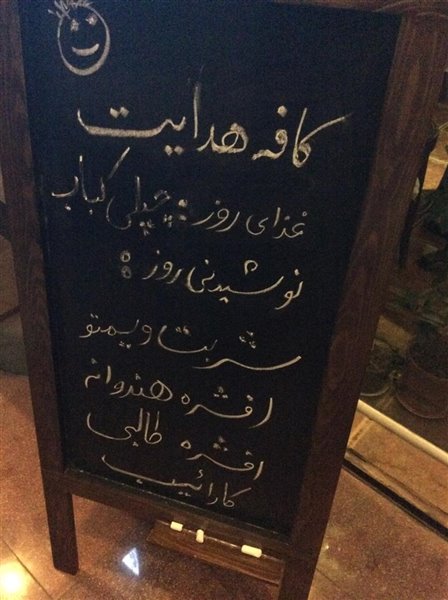 کافه هدایت
غذای روز: چپلی کباب
نوشیدنی روز:
شربت ویمتو
افشره هندوانه
افشره طالبی
کارائیب